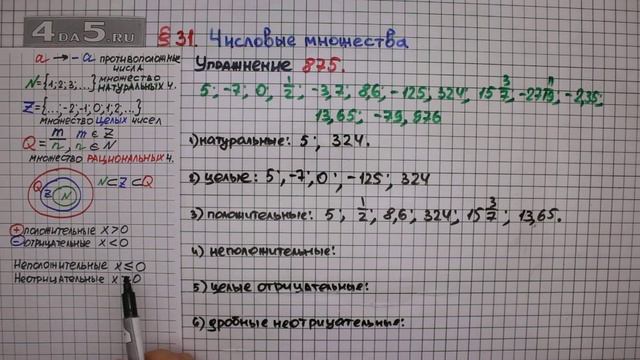 4DA5.RU
§31. Числовые множества
Упражнение 875.
5; -7; 0; 1/2; -3,7; 8,6; -125; 324; 15 3/7; -2,35;
13,65; -79, 976
a → -a противоположные числа
N={1;2;3;...} множество натуральных ч.
Z={...;-2;-1;0;1;2,...}
множество целых чисел
Q= m/n, m∈Z, n∈N
множество рациональных ч.
Q Z N N⊂Z⊂Q
+ положительные x>0
- отрицательные x<0
Неположительные x≤0
Неотрицательные x 0
1) натуральные: 5; 324.
2) целые: 5; -7; 0; -125; 324
3) положительные: 5; 1/2; 8,6; 324; 15 3/7; 13,65.
4) неположительные:
5) целые отрицательные:
6) дробные неотрицательные: